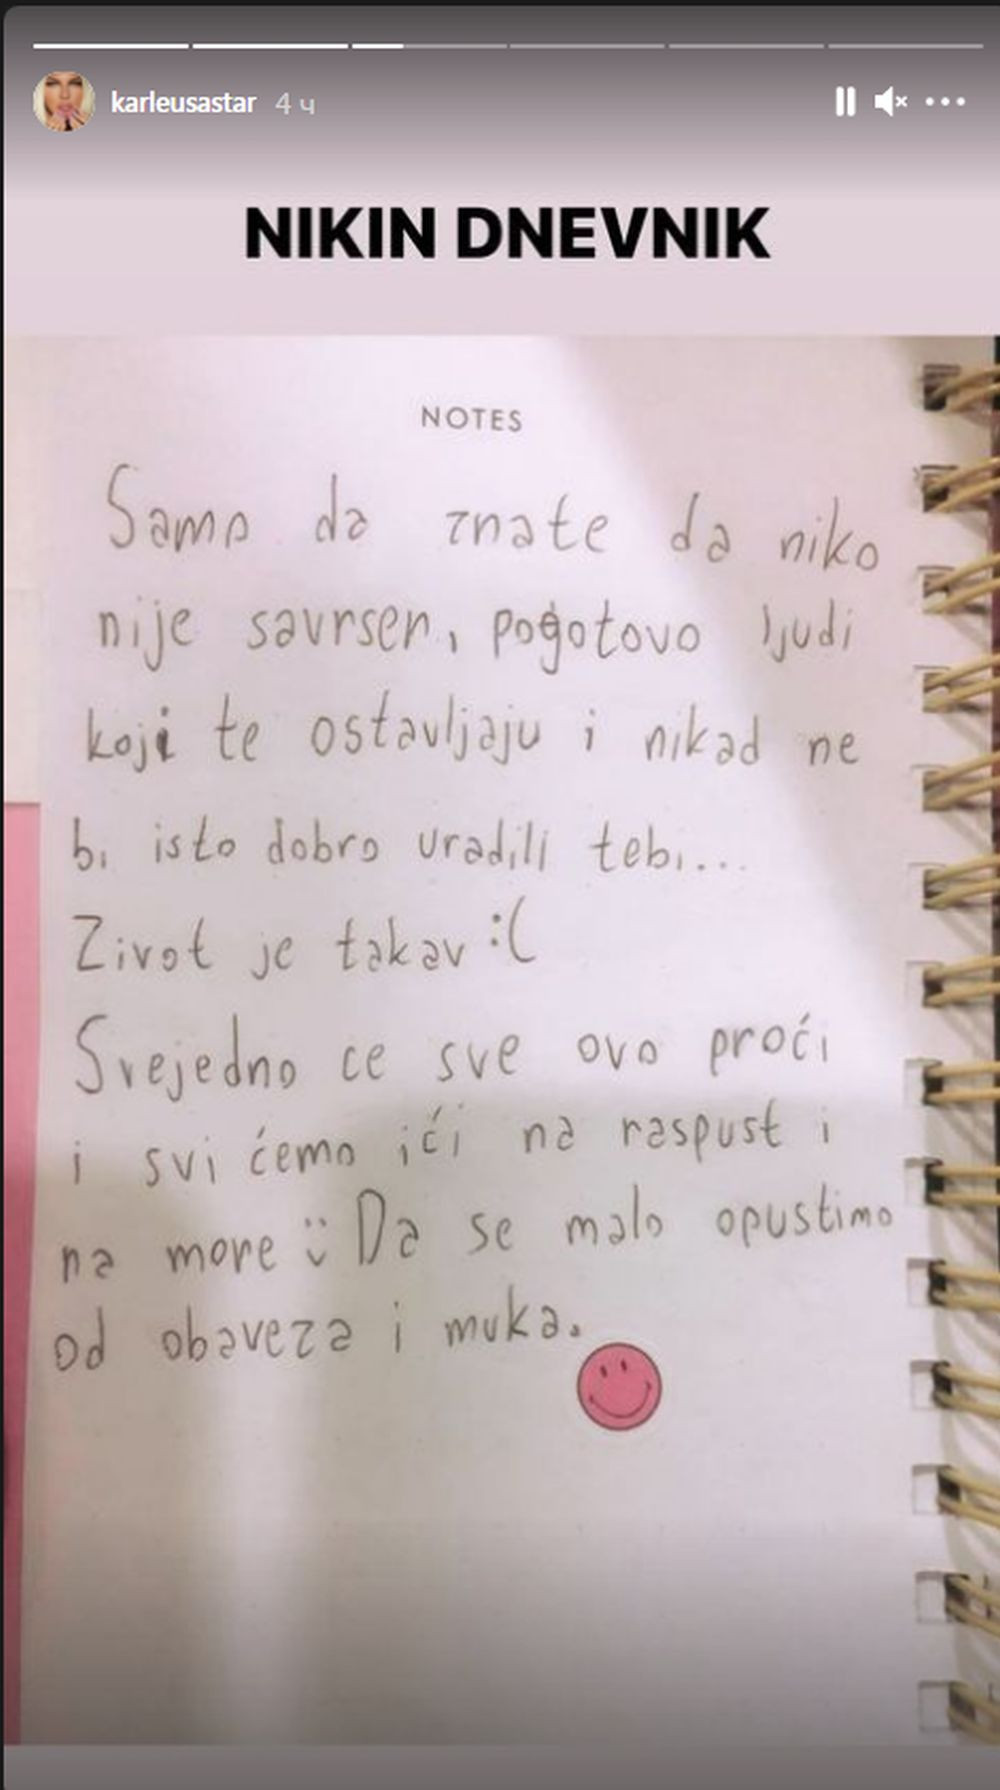 karleusastar 4 ч
NIKIN DNEVNIK
NOTES
Samo da znate da niko
nije savrsen, pogotovo ljudi
koji te ostavljaju i nikad ne
bi isto dobro uradili tebi...
Zivot je takav :(
Svejedno ce sve ovo proći
i svi ćemo ići na raspust i
na more :) Da se malo opustimo
od obaveza i muka.